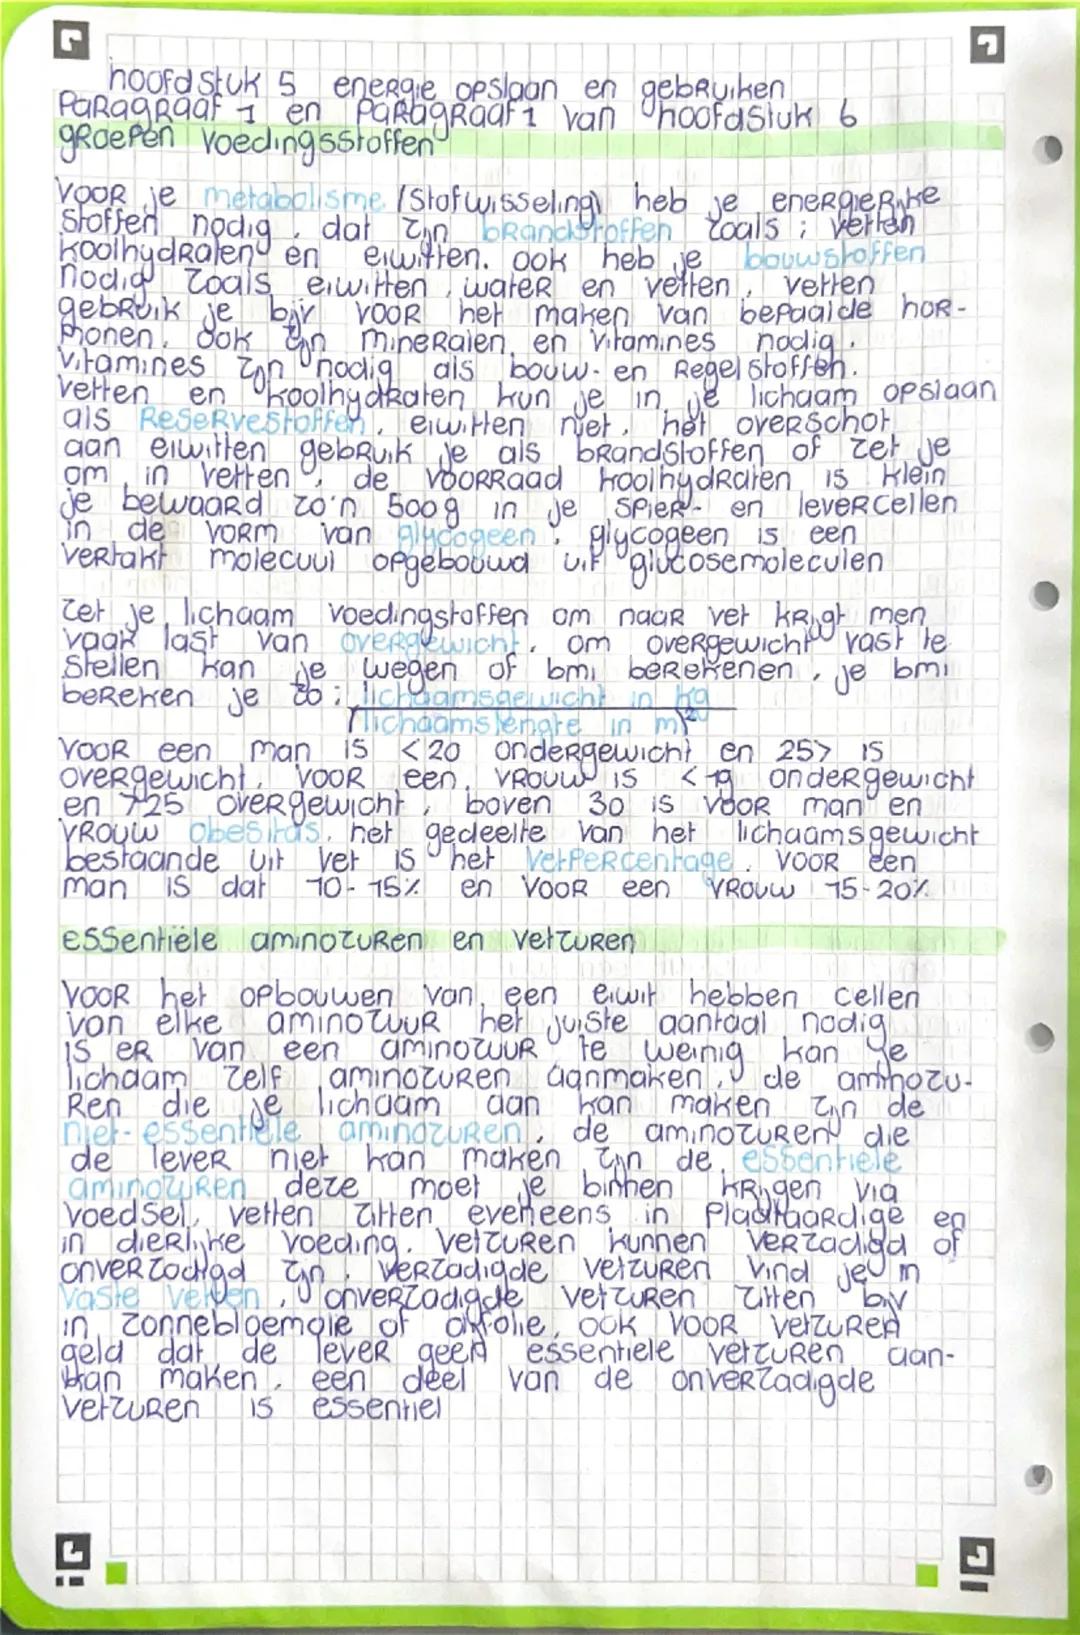 hoofdstuk 5 energie opslaan en gebruiken
Paragraaf 1 en Paragraaf 1 van hoofdstuk 6
groepen voedingsstoffen
voor je metabolisme (stofwisseling) heb je energierijke
stoffen nodig, dat zijn brandstoffen zoals; vetten
koolhydraten en eiwitten. ook heb je bouwstoffen
nodig zoals eiwitten, water en vetten, vetten
gebruik je bijv voor het maken van bepaalde hor-
monen. ook zijn mineralen en vitamines nodig.
vitamines zijn nodig als bouw- en Regelstoffen.
vetten en koolhydraten kun je in je lichaam opslaan
als Reservestoffen, eiwitten niet. het overschot
aan eiwitten gebruik je als brandstoffen of zet je
om in vetten. de voorraad koolhydraten is klein
je bewaard zo'n 500g in je spier- en levercellen
in de vorm van glycogeen. glycogeen is een
vertakt molecuul opgebouwd uit glucosemoleculen
zet je lichaam voedingstoffen om naar vet krijgt men
vaak last van overgewicht. om overgewicht vast te
stellen kan je wegen of bmi berekenen, je bmi
bereken je zo: lichaamsgewicht in kg
(lichaamslengte in m)²
voor een man is <20 ondergewicht en 25> is
overgewicht. voor een vrouw is <19 ondergewicht
en >25 overgewicht, boven 30 is voor man en
vrouw obesitas. het gedeelte van het lichaamsgewicht
bestaande uit vet is het vetpercentage. voor een
man is dat 10-15% en voor een vrouw 15-20%
essentiële aminozuren en vetzuren
voor het opbouwen van een eiwit hebben cellen
van elke aminozuur het juiste aantaal nodig
is er van een aminozuur te weinig kan je
lichaam zelf aminozuren aanmaken, de aminozu-
ren die je lichaam aan kan maken zijn de
niet-essentiële aminozuren. de aminozuren die
de lever niet kan maken zijn de essentiele
aminozuren deze moet je binnen krijgen via
voedsel, vetten zitten eveneens in plantaardige en
in dierlijke voeding. vetzuren kunnen verzadigd of
onverzadigd zijn. verzadigde vetzuren vind je in
vaste vetten, onverzadigde vetzuren zitten bijv
in zonnebloemolie of olijfolie, ook voor vetzuren
geld dat de lever geen essentiele vetzuren aan-
kan maken. een deel van de onverzadigde
vetzuren is essentiel